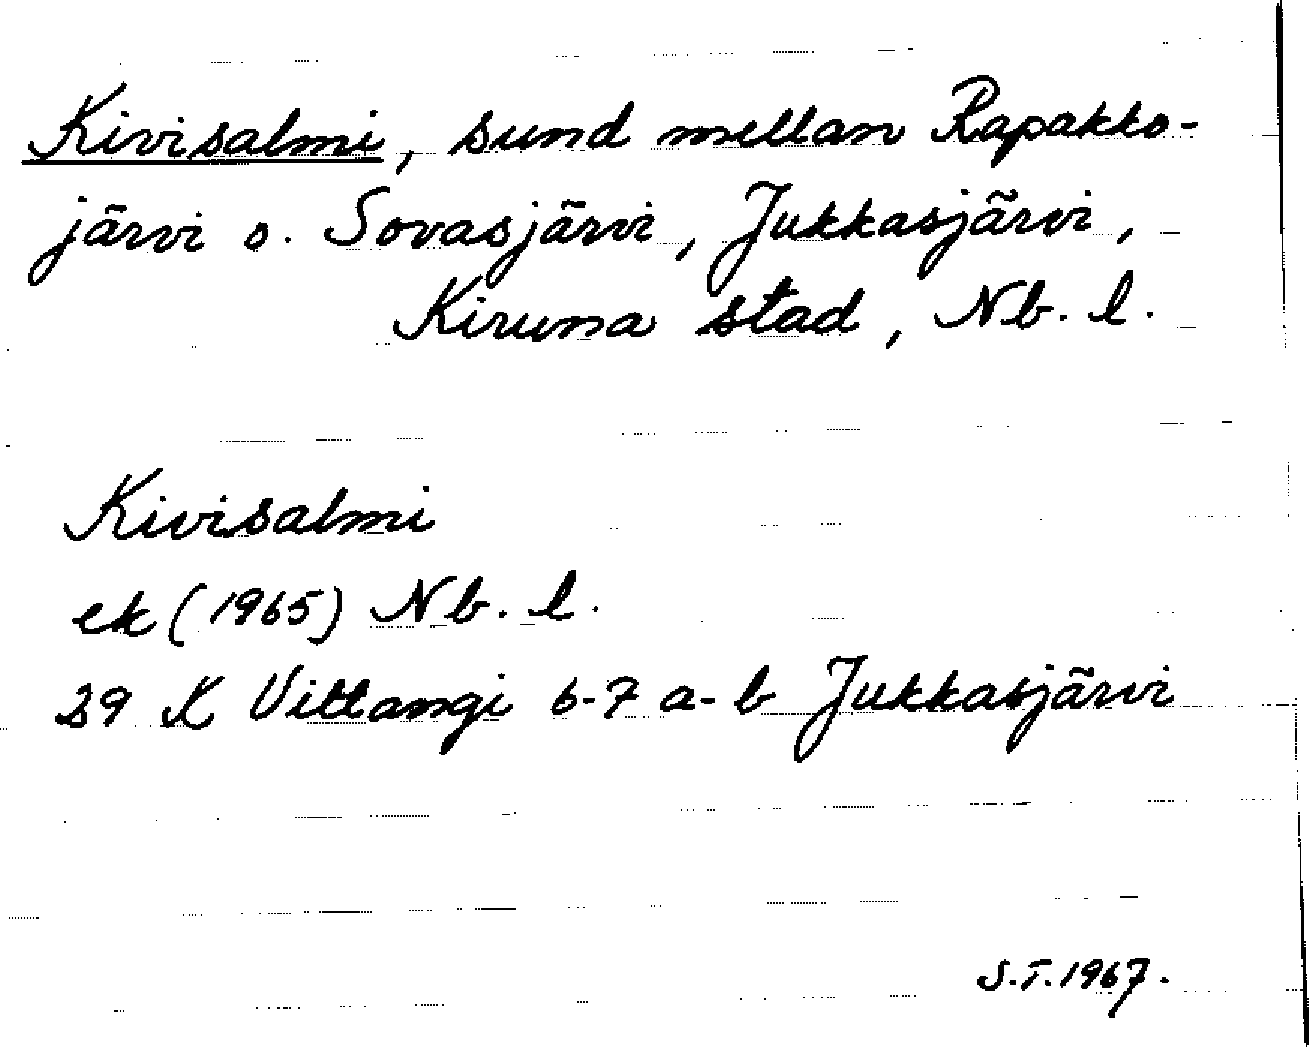 Kivisalmi, sund mellan Rapakko-
järvi o. Sovasjärvi, Jukkasjärvi,
Kiruna stad, Nb. l.
Kivisalmi
ek (1965) Nb. l.
29 K Vittangi 6-7 a-b Jukkasjärvi
S.T. 1967.